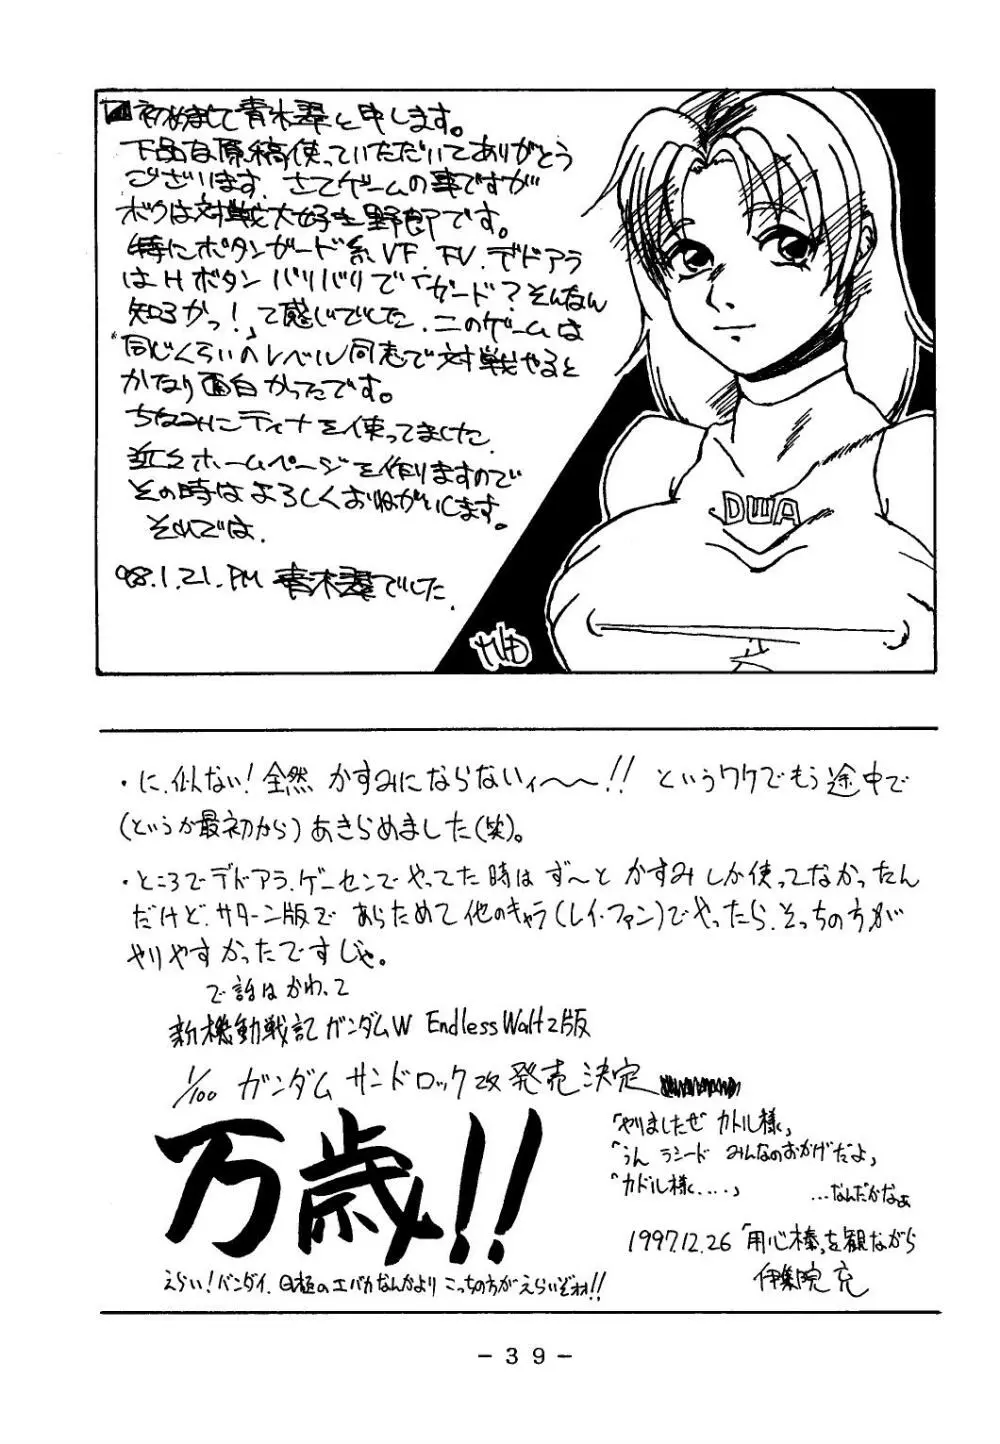 初めまして青木翠と申します。
下品な原稿使っていただいてありがとう
ございます。さてゲームの事ですが
ボクは対戦大好き野郎です。
特にボタンガード系VF.FV.デドアラ
はHボタンバリバリで「ガード?そんなん
知るかっ!」て感じでした。このゲームは
同じくらいのレベル同志で対戦やると
かなり面白かったです。
ちなみにティナを使ってました。
近々ホームページを作りますので
その時はよろしくおねがいします。
それでは.
'98.1.21.PM 青木翠でした.
DWA
・に、似ない!全然 かすみにならないィ～～!! というワケでもう途中で
(というか最初から)あきらめました(笑)。
・ところでデドアラ、ゲーセンでやってた時はず～と かすみしか使ってなかったん
だけど、サターン版で あらためて他のキャラ(レイ・ファン)でやったら、そっちの方が
やりやすかったですじゃ。
で話はかわって
新機動戦記ガンダムW Endless Waltz版
1/100 ガンダム サンドロック改 発売決定
万歳!!
「やりましたぜ カトル様」
「うん ラシード みんなのおかげだよ」
「カトル様....」 ...なんだかなぁ
1997.12.26 「用心棒」を観ながら
伊集院 充
えらい!バンダイ、のエバカなんかより こっちの方がえらいぞォ!!
- 39 -